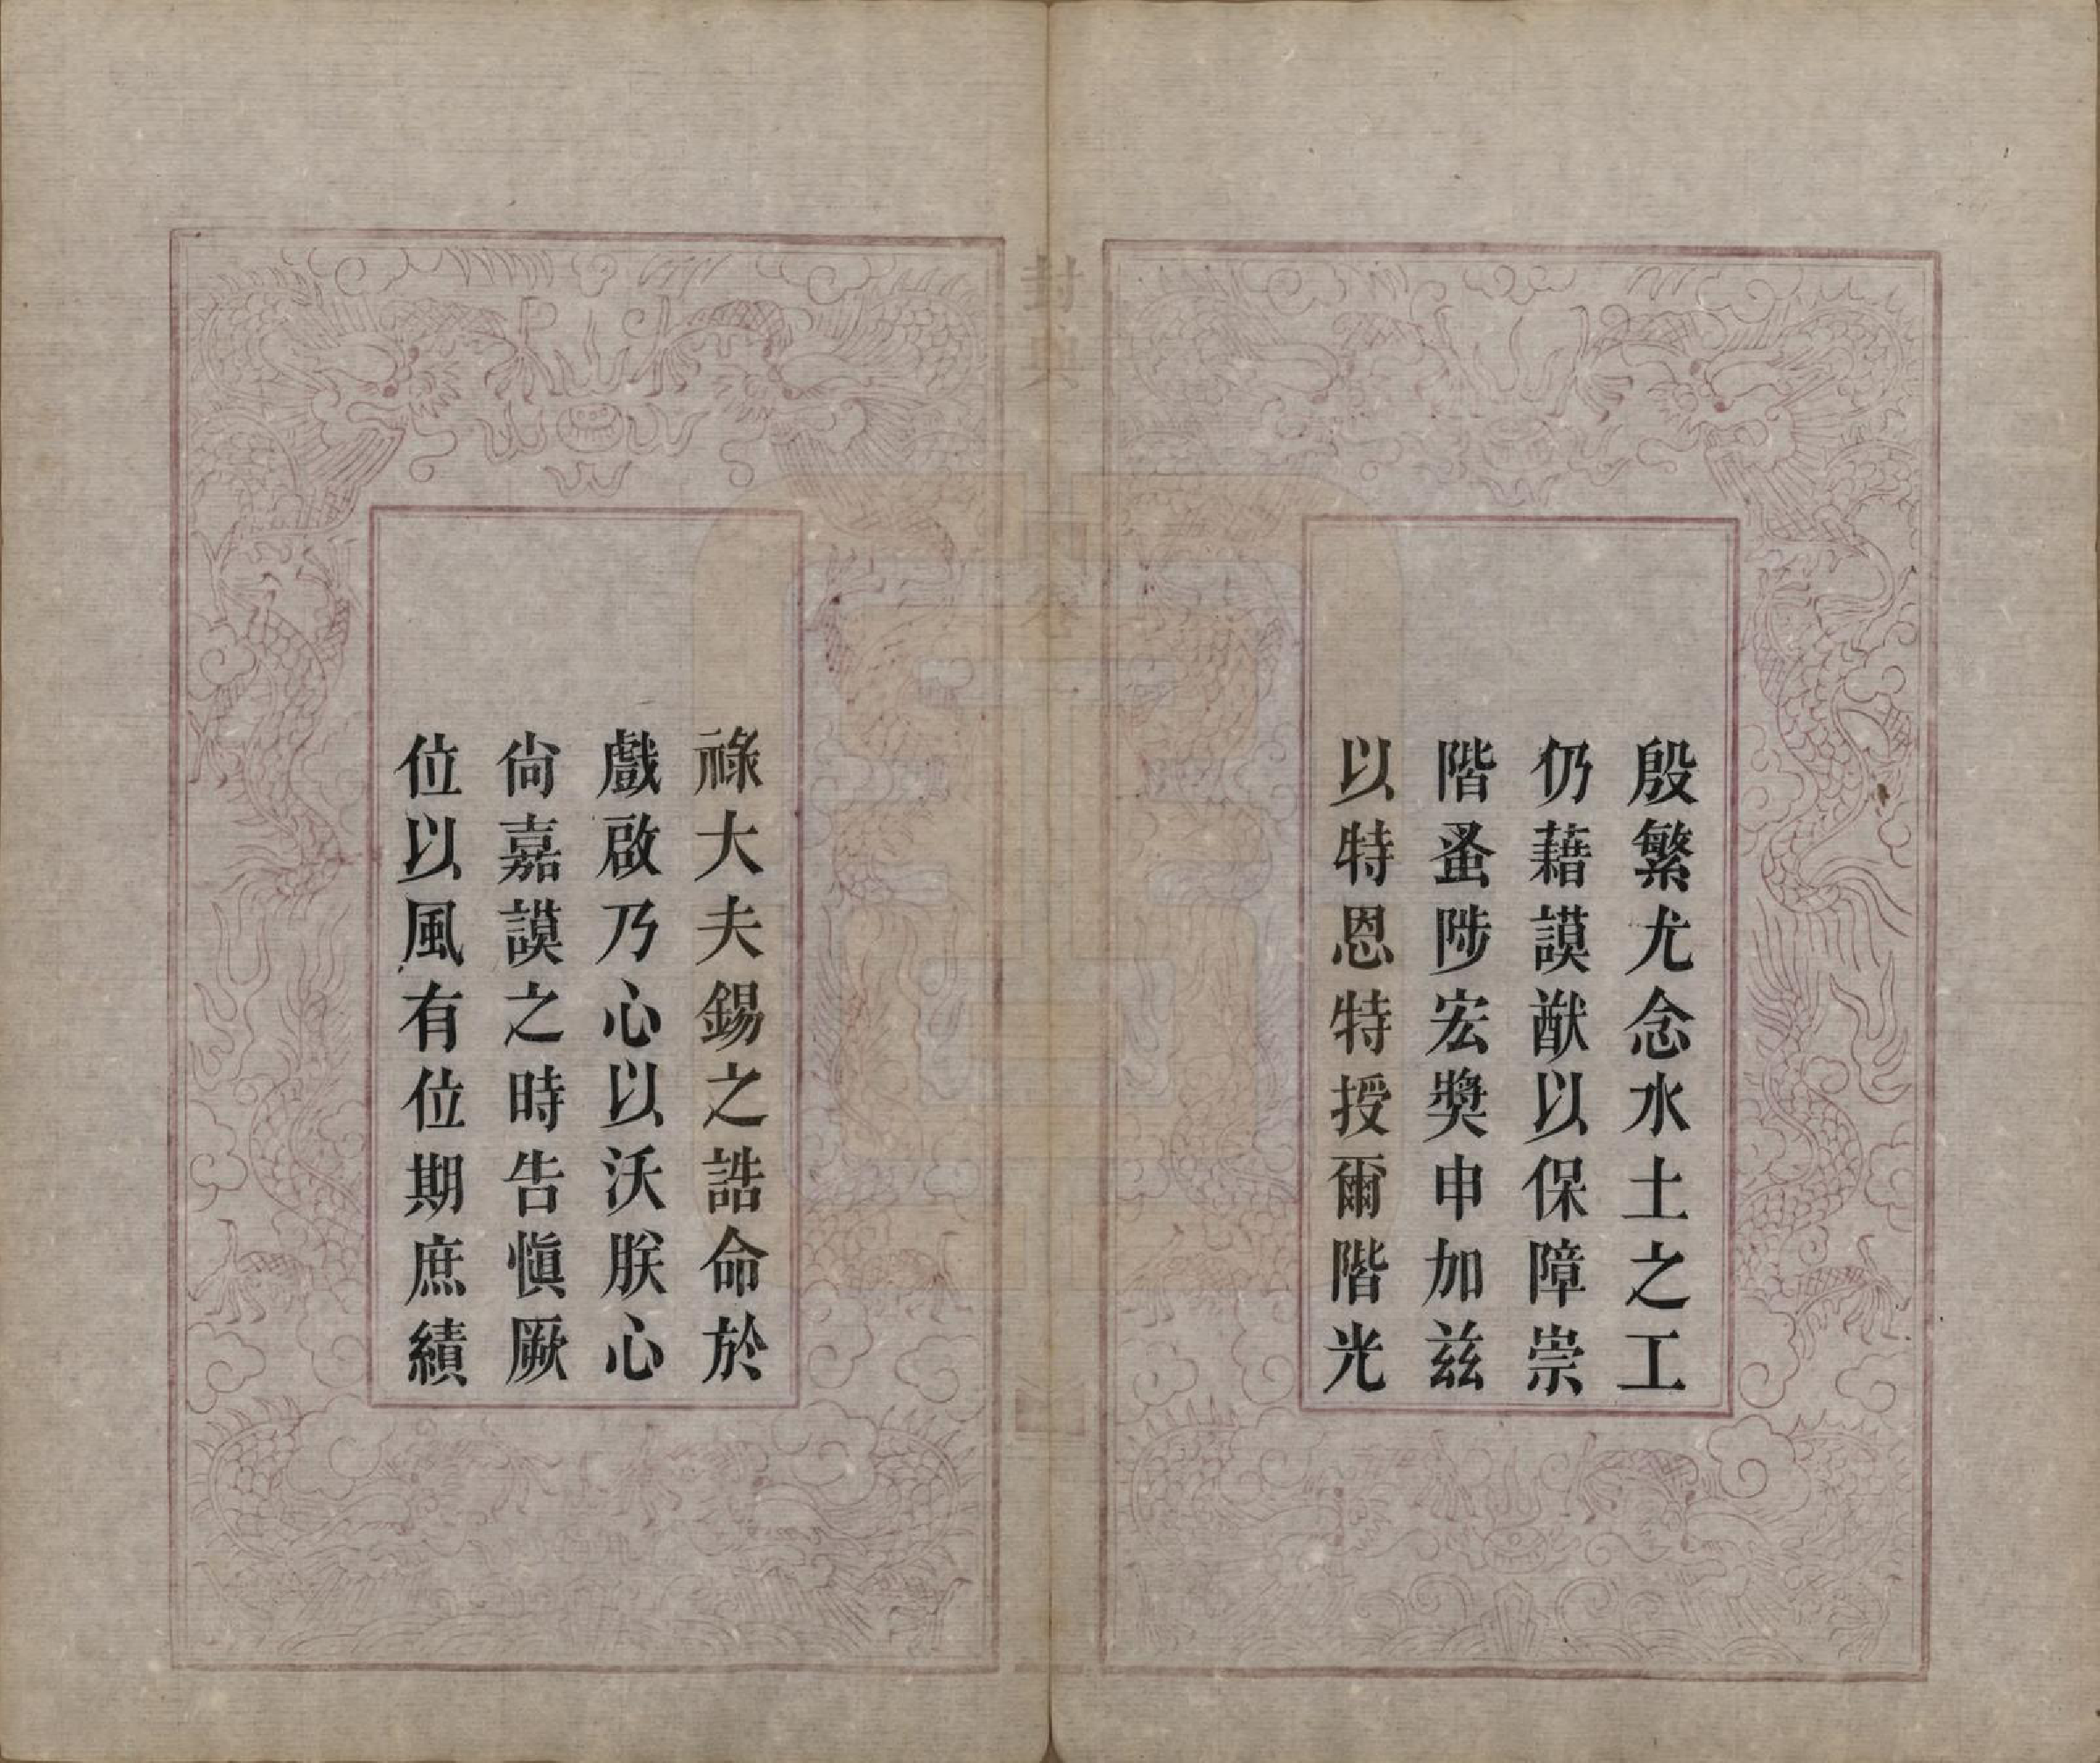 殷繁尤念水土之工
仍藉謨猷以保障崇
階蚤陟宏獎申加兹
以特恩特授爾階光
祿大夫錫之誥命於
戲啟乃心以沃朕心
尙嘉謨之時告愼厥
位以風有位期庶績